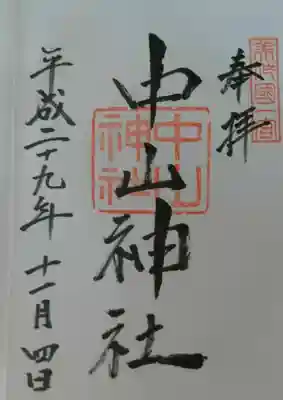 奉拝
美作國一宮
中山神社
中山神社
平成二十九年十一月四日